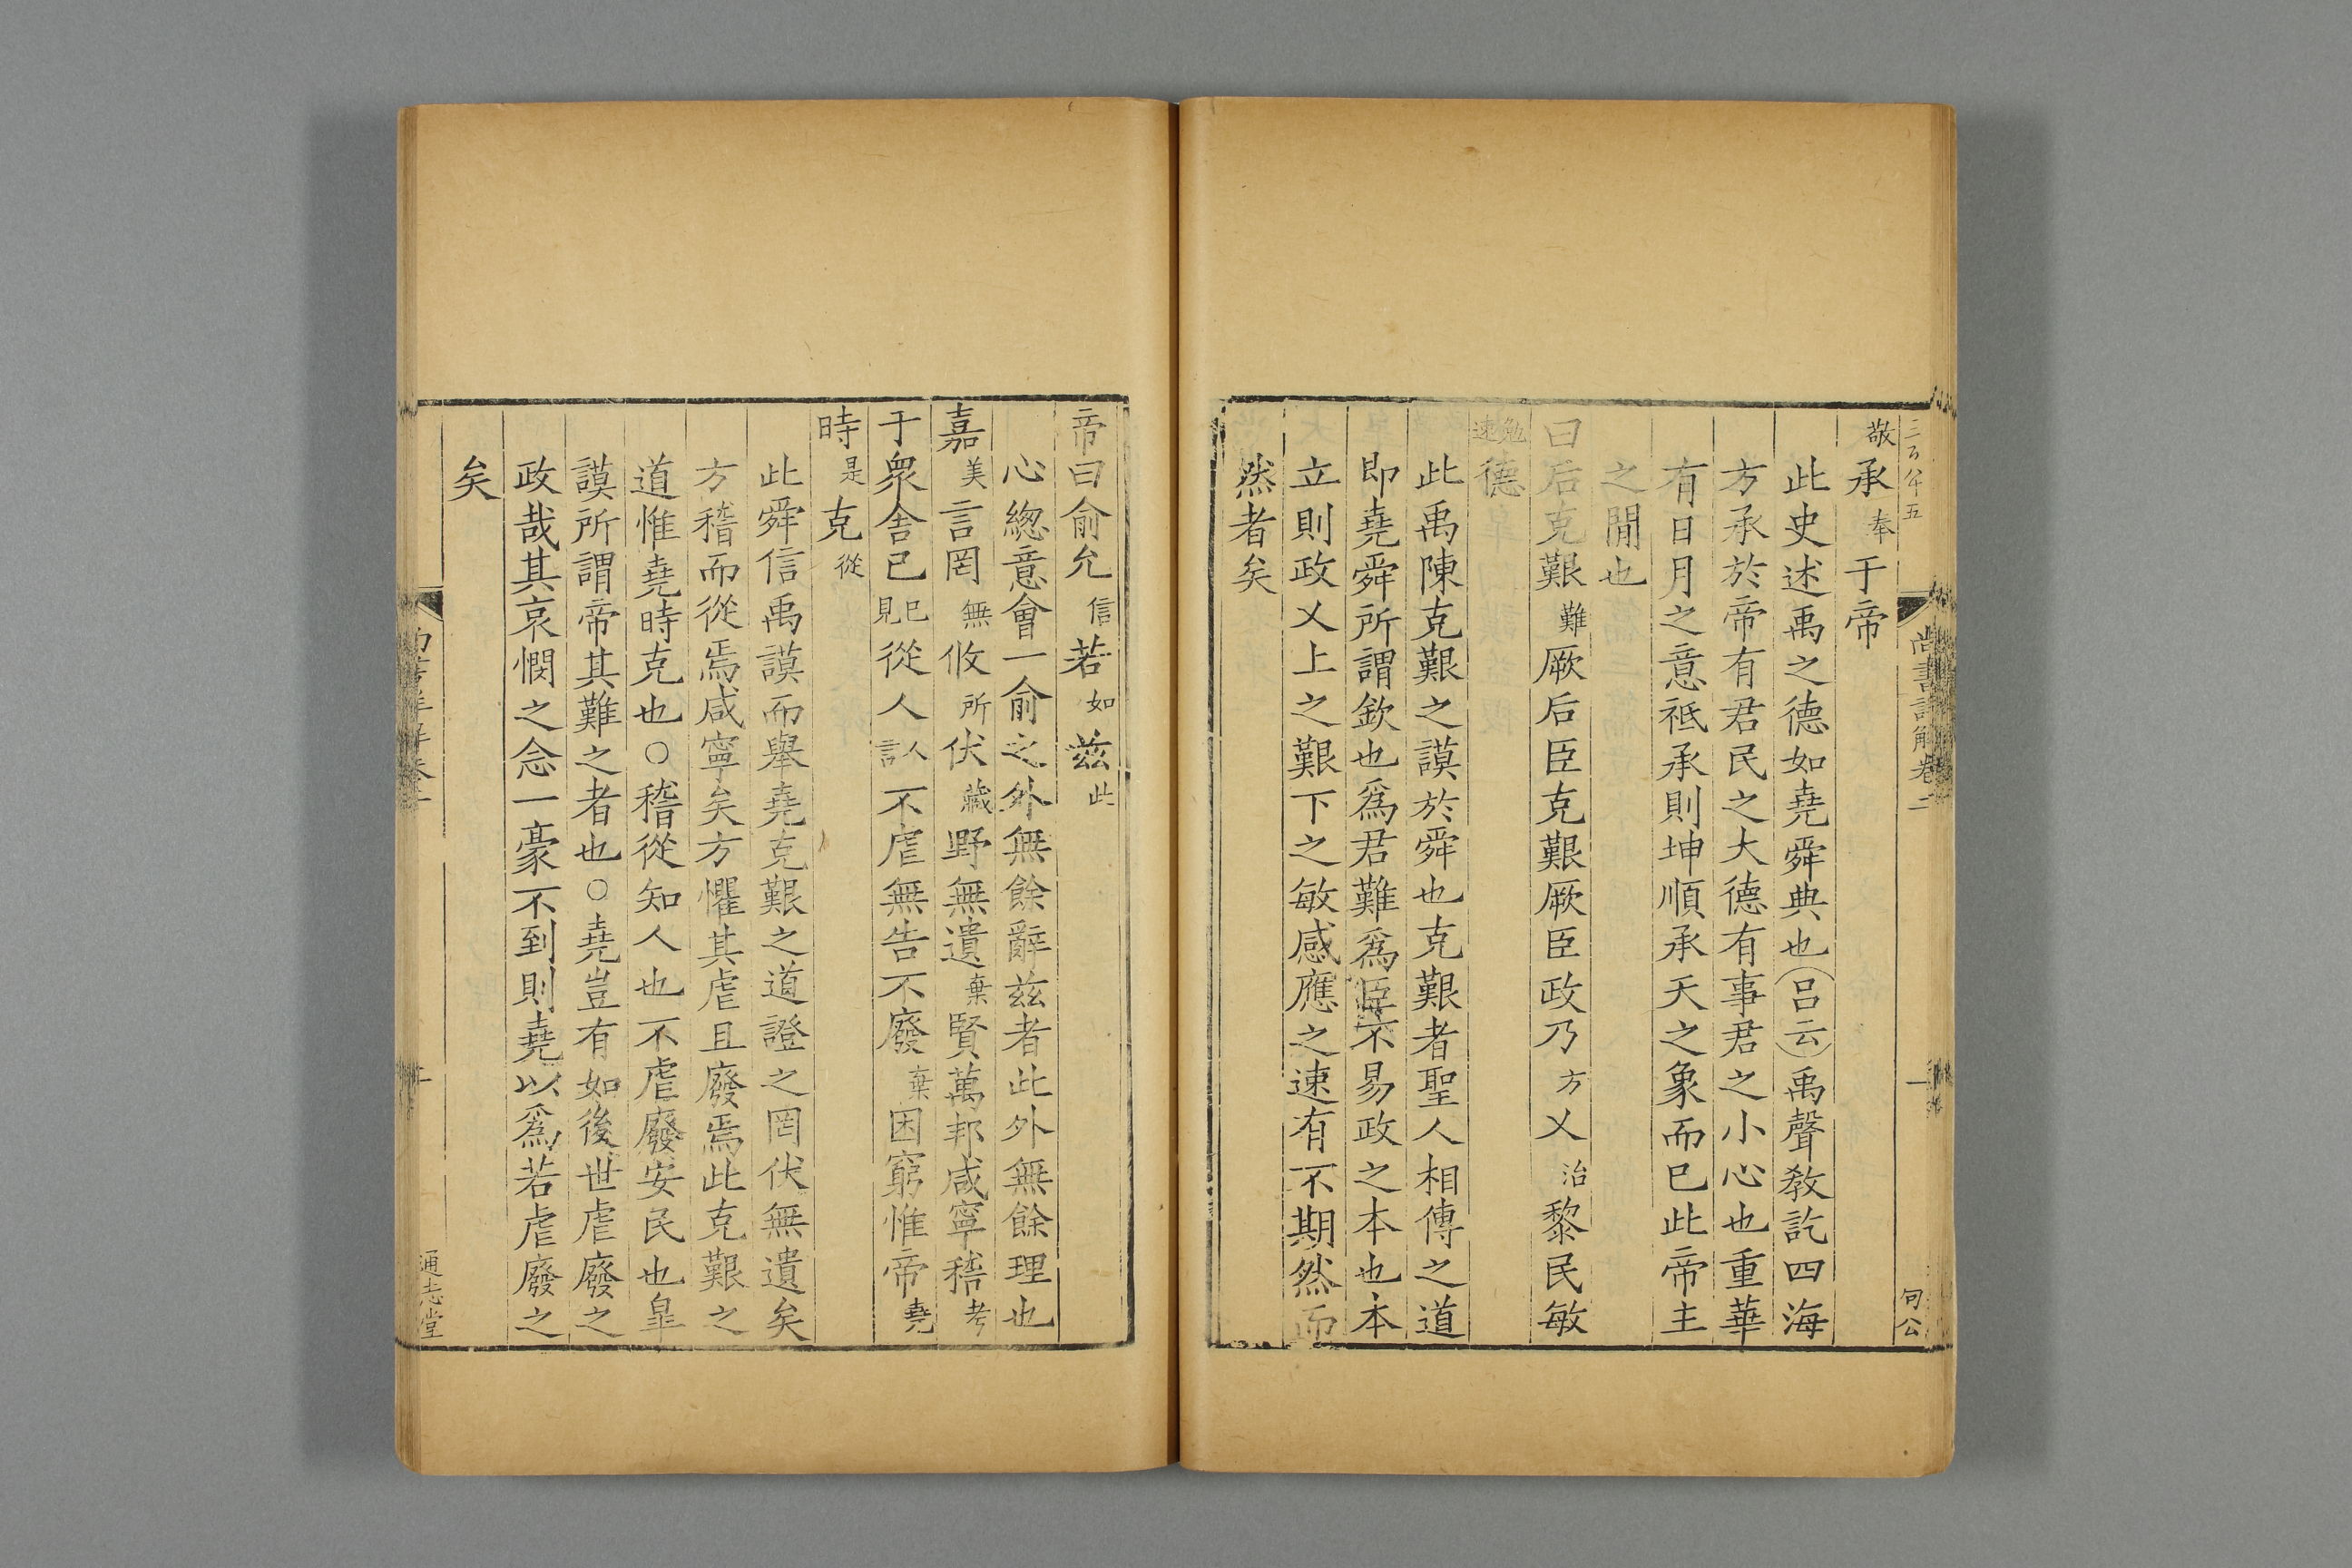 尚書詳解卷二
一
句公
敬承奉于帝
此史述禹之德如堯舜典也(呂云)禹聲敎訖四海
方承於帝有君民之大德有事君之小心也重華
有日月之意祗承則坤順承天之象而已此帝主
之閒也
曰后克艱難厥后臣克艱厥臣政乃方乂治黎民敏
勉速德
此禹陳克艱之謨於舜也克艱者聖人相傳之道
即堯舜所謂欽也爲君難爲臣不易政之本也本
立則政乂上之艱下之敏感應之速有不期然而
然者矣
帝曰俞允信若如茲此
心緫意會一俞之外無餘辭茲者此外無餘理也
嘉美言罔無攸所伏藏野無遺棄賢萬邦咸寧稽考
于衆舍已已見從人人言不虐無告不廢棄困窮惟帝堯
時是克從
此舜信禹謨而舉堯克艱之道證之罔伏無遺矣
方稽而從焉咸寧矣方懼其虐且廢焉此克艱之
道惟堯時克也○稽從知人也不虐廢安民也臯
謨所謂帝其難之者也○堯豈有如後世虐廢之
政哉其哀憫之念一豪不到則堯以爲若虐廢之
矣
通志堂